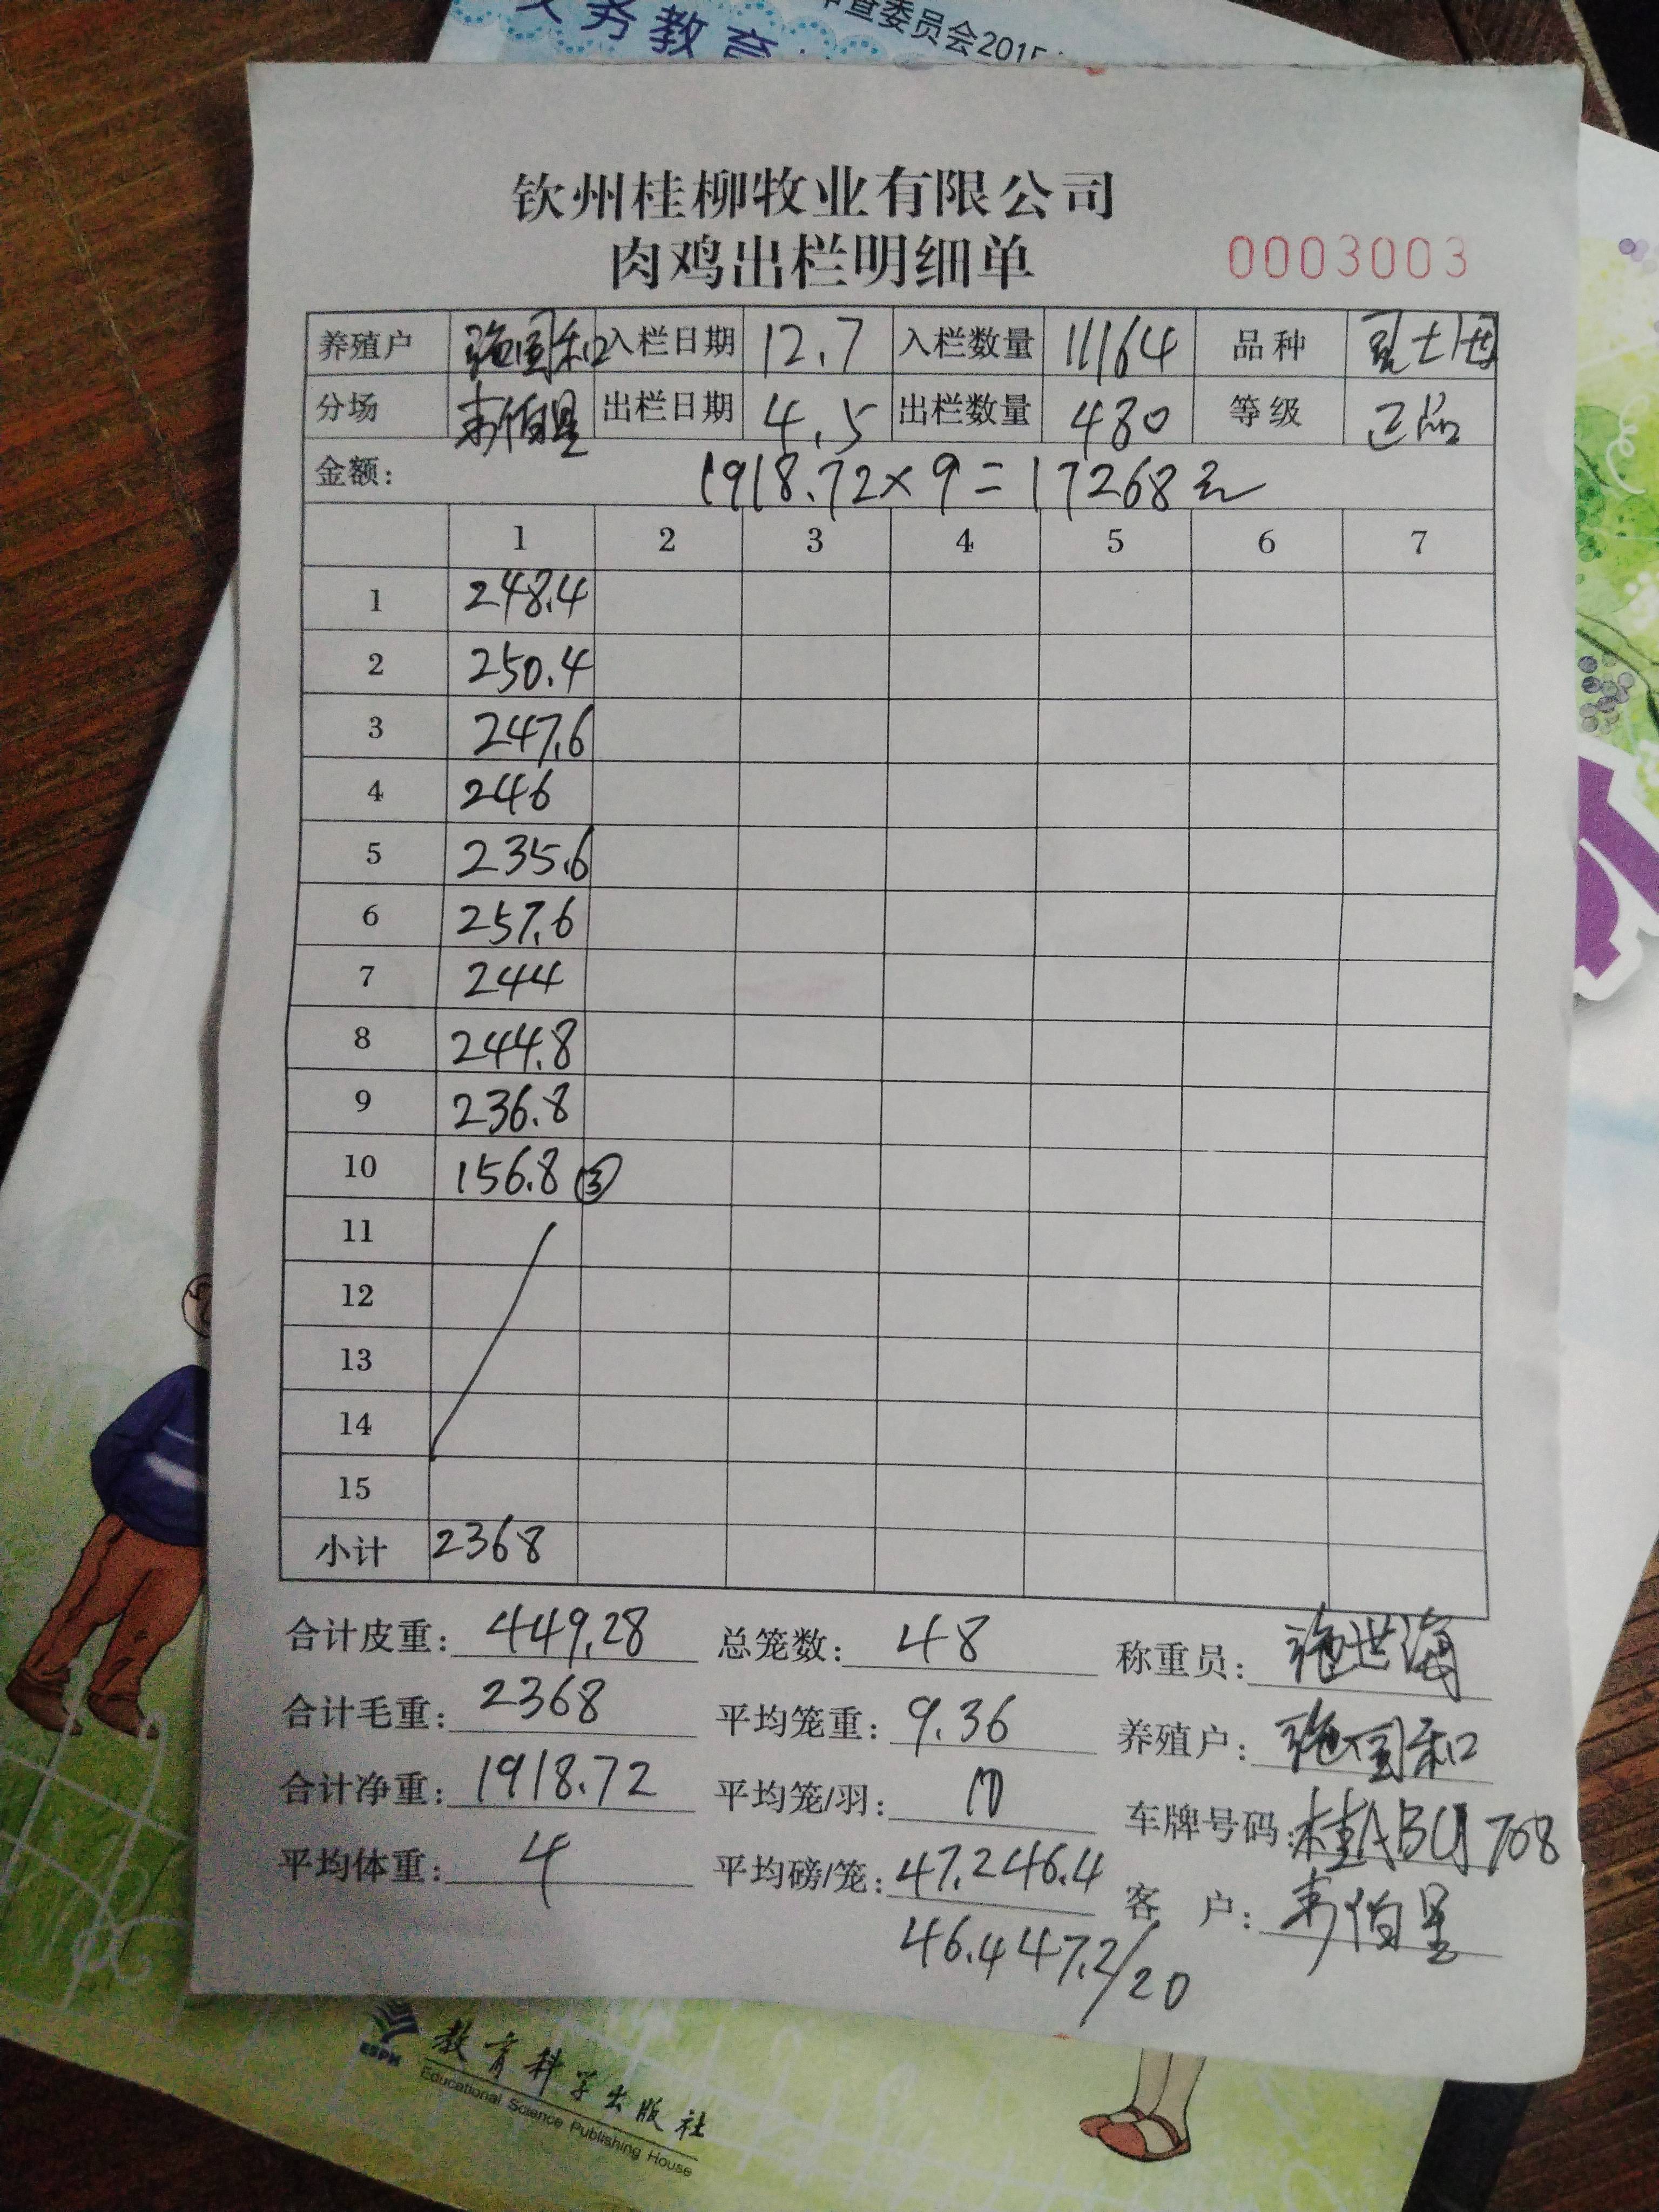 义务教育
审查委员会2015
钦州桂柳牧业有限公司
肉鸡出栏明细单 0003003
养殖户 施国和 入栏日期 12.7 入栏数量 11164 品种
分场 韦伯星 出栏日期 4.5 出栏数量 480 等级 正品
金额: 1918.72×9=17268元
1 2 3 4 5 6 7
1 248.4
2 250.4
3 247.6
4 246
5 235.6
6 257.6
7 244
8 244.8
9 236.8
10 156.8 ③
11
12
13
14
15
小计 2368
合计皮重: 449.28 总笼数: 48 称重员: 施世海
合计毛重: 2368 平均笼重: 9.36 养殖户: 施国和
合计净重: 1918.72 平均笼/羽: 10 车牌号码: 桂A 708
平均体重: 4 平均磅/笼: 47.2 46.4 客户: 韦伯星
46.4 47.2/20
ESPH 教育科学出版社
Educational Science Publishing House